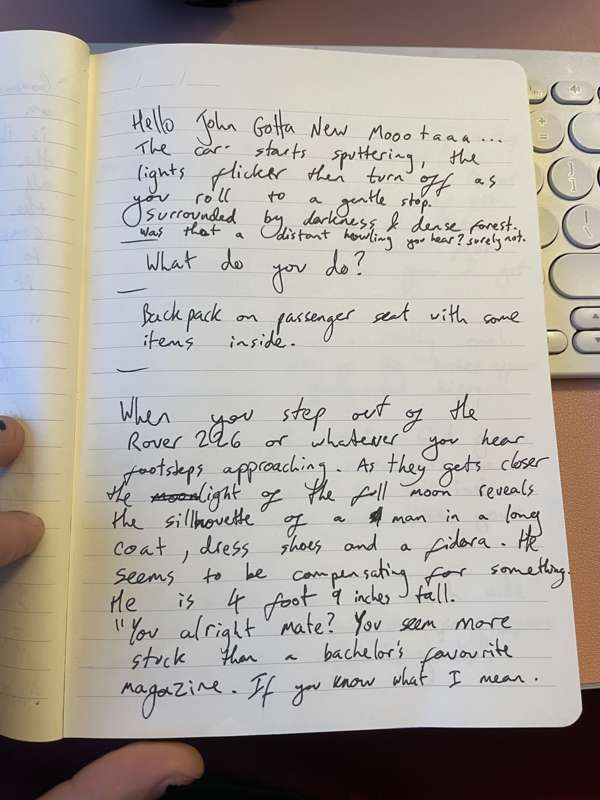 Hello John Gotta New Moootaaa...
The car starts sputtering, the
lights flicker then turn off as
you roll to a gentle stop.
Surrounded by darkness & dense forest.
Was that a distant howling you hear? Surely not.
What do you do?
Backpack on passenger seat with some
items inside.
When you step out of the
Rover 226 or whatever you hear
footsteps approaching. As they gets closer
the light of the full moon reveals
the sillhouette of a man in a long
coat, dress shoes and a fidora. He
seems to be compensating for something.
He is 4 foot 9 inches tall.
"You alright mate? You seem more
stuck than a bachelor's favourite
magazine. If you know what I mean.